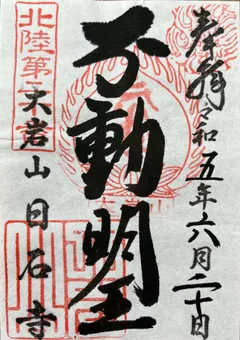 奉拝 令和五年六月二十日
不動明王
北陸第一
大岩山日石寺